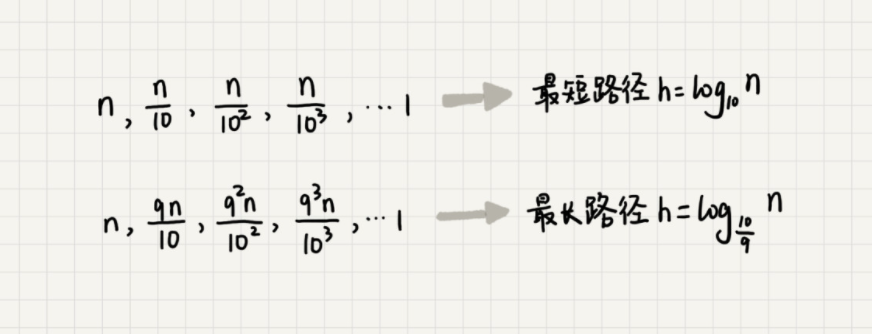 n, n/10, n/10², n/10³, ⋯ 1 最短路径 h = log₁₀ n
n, 9n/10, 9²n/10², 9³n/10³, ⋯ 1 最长路径 h = log_{10/9} n